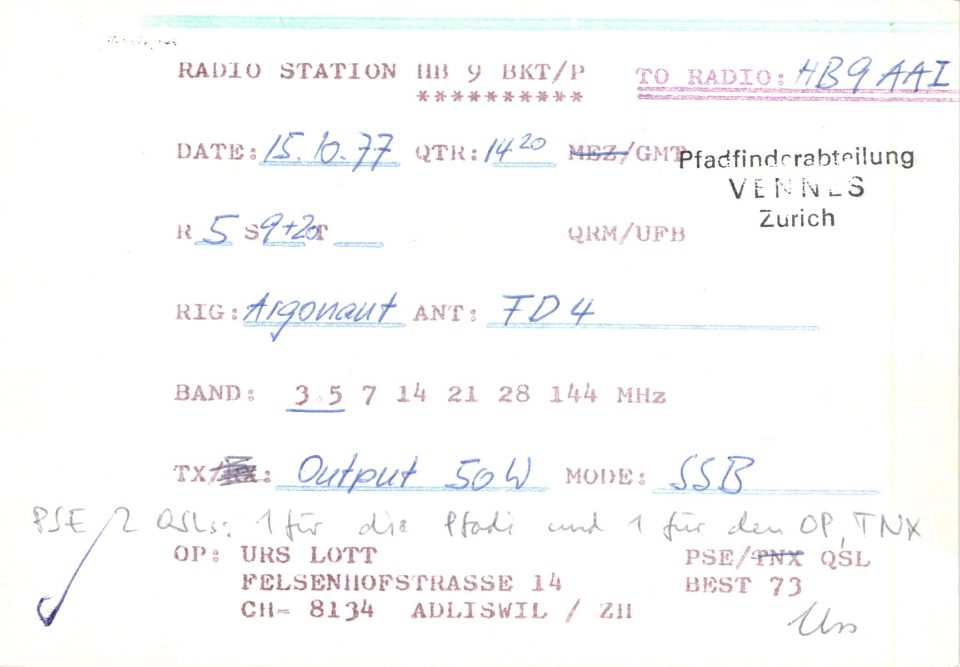 RADIO STATION HB 9 BKT/P TO RADIO: HB9AAI
**********
DATE: 15.10.77 QTR: 14 20 MEZ/GMT
Pfadfinderabteilung
VENNES
Zürich
R 5 S 9+20 T QRM/UFB
RIG: Argonaut ANT: FD4
BAND: 3.5 7 14 21 28 144 MHz
TX/ : Output 50W MODE: SSB
PSE 2 QSLs: 1 für die Pfadi und 1 für den OP, TNX
OP: URS LOTT PSE/TNX QSL
FELSENHOFSTRASSE 14 BEST 73
CH- 8134 ADLISWIL / ZH Urs